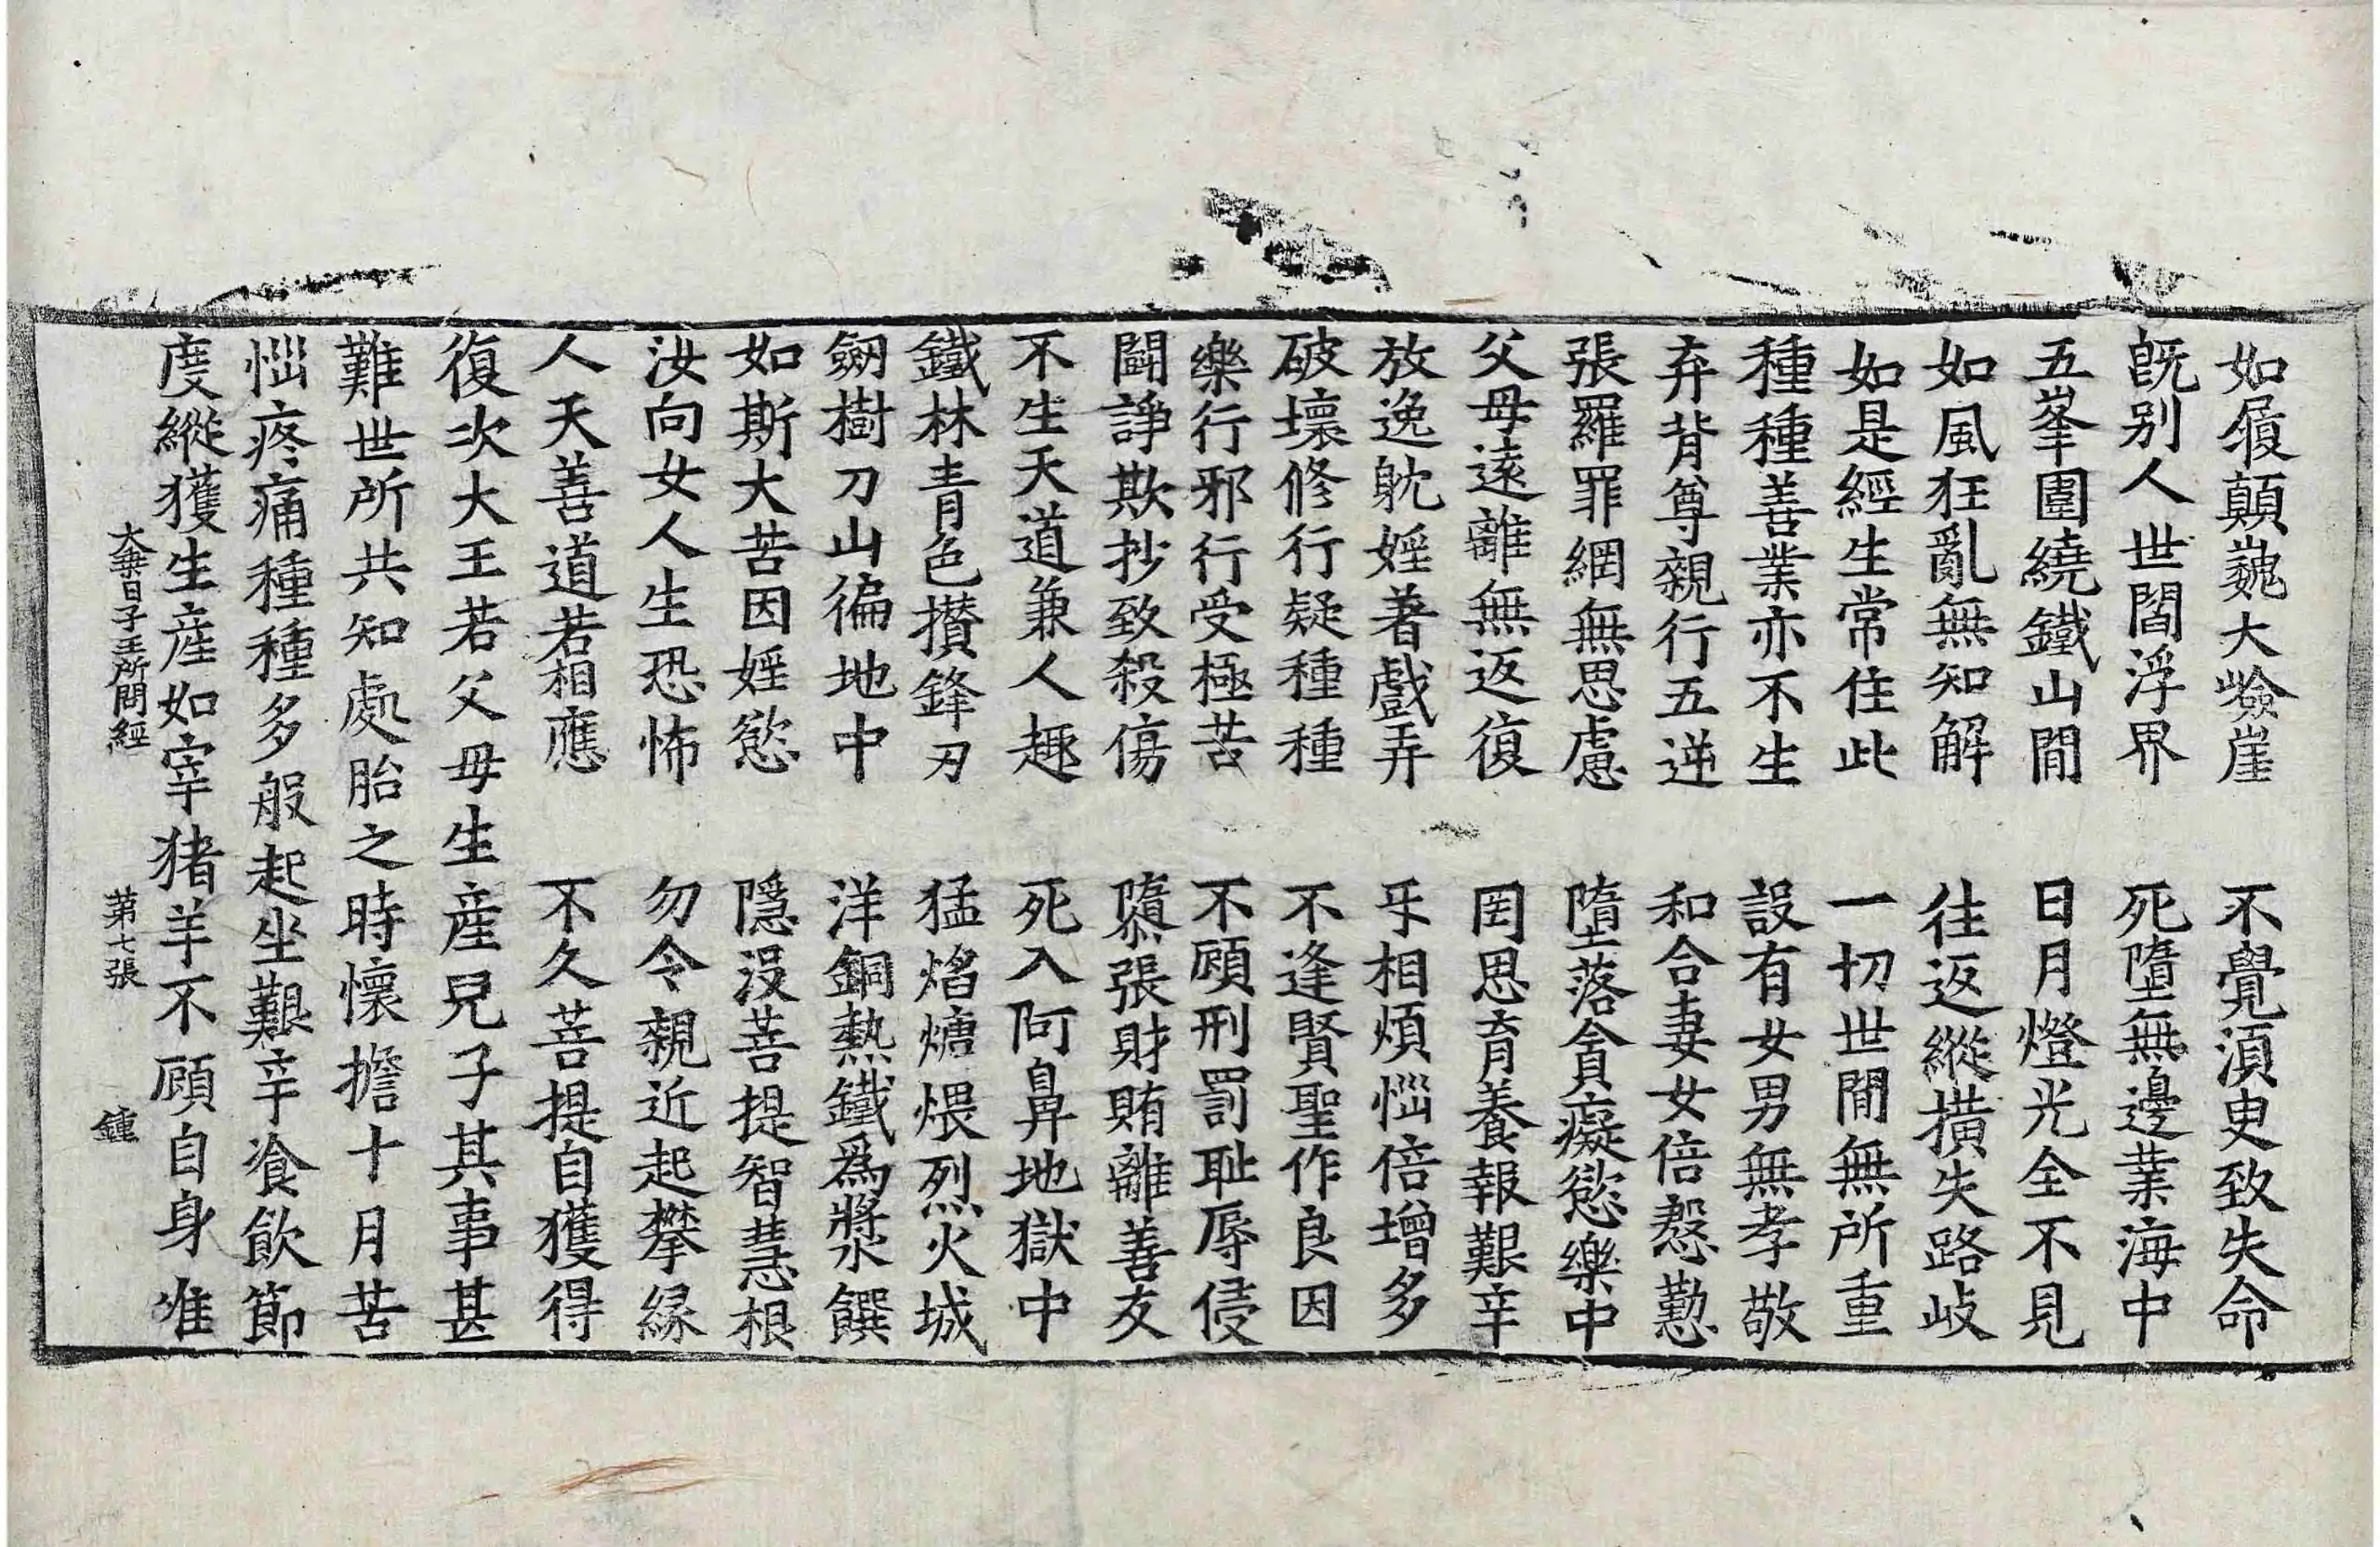 如履顛巍大嶮崖　不覺湏臾致失命
旣别人世閻浮界　死墮無邊業海中
五峯圍繞鐵山間　日月燈光全不見
如風狂亂無知解　往返縱横失路歧
如是經生常住此　一切世間無所重
種種善業亦不生　設有女男無孝敬
弃背尊親行五逆　和合妻女倍慇懃
張羅罪網無思慮　墮落貪癡慾樂中
父母逺離無返復　罔思育養報艱辛
放逸躭婬著戲弄　㸦相煩惱倍增多
破壞修行疑種種　不逢賢聖作良因
樂行邪行受極苦　不顧刑罰耻辱侵
鬬諍欺抄致殺傷　隳張財賄離善友
不生天道兼人趣　死入阿鼻地獄中
鐵林青色攅鋒刃　猛焰煻煨烈火城
劒樹刀山徧地中　洋銅熱鐵爲漿饌
如斯大苦因婬慾　隱没菩提智慧根
汝向女人生恐怖　勿令親近起攀縁
人天善道若相應　不久菩提自獲得
復次大王若父母生産兒子其事甚
難世所共知處胎之時懷擔十月苦
惱疼痛種種多般起坐艱辛飡飲節
度縱獲生産如宰猪羊不顧自身准
大乗日子王所問經　第七張　鍾